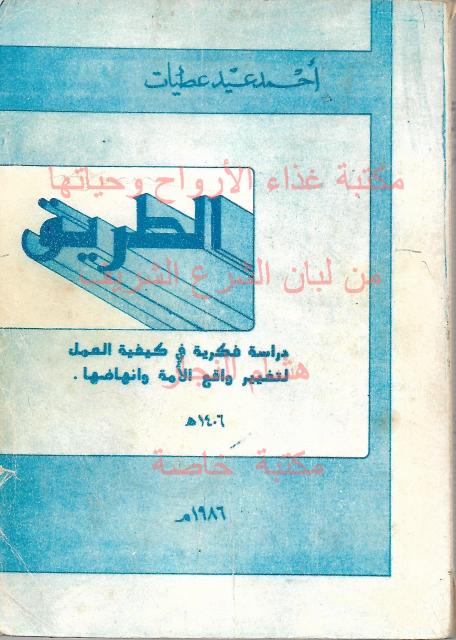 أحمد عيد عطيات
مكتبة غذاء الأرواح وحياتها
الطريق
من لبان الشرع الشريف
دراسة فكرية في كيفية العمل
لتغيير واقع الأمة وانهاضها .
هشام النجار
١٤٠٦ هـ
مكتبة خاصة
١٩٨٦ م